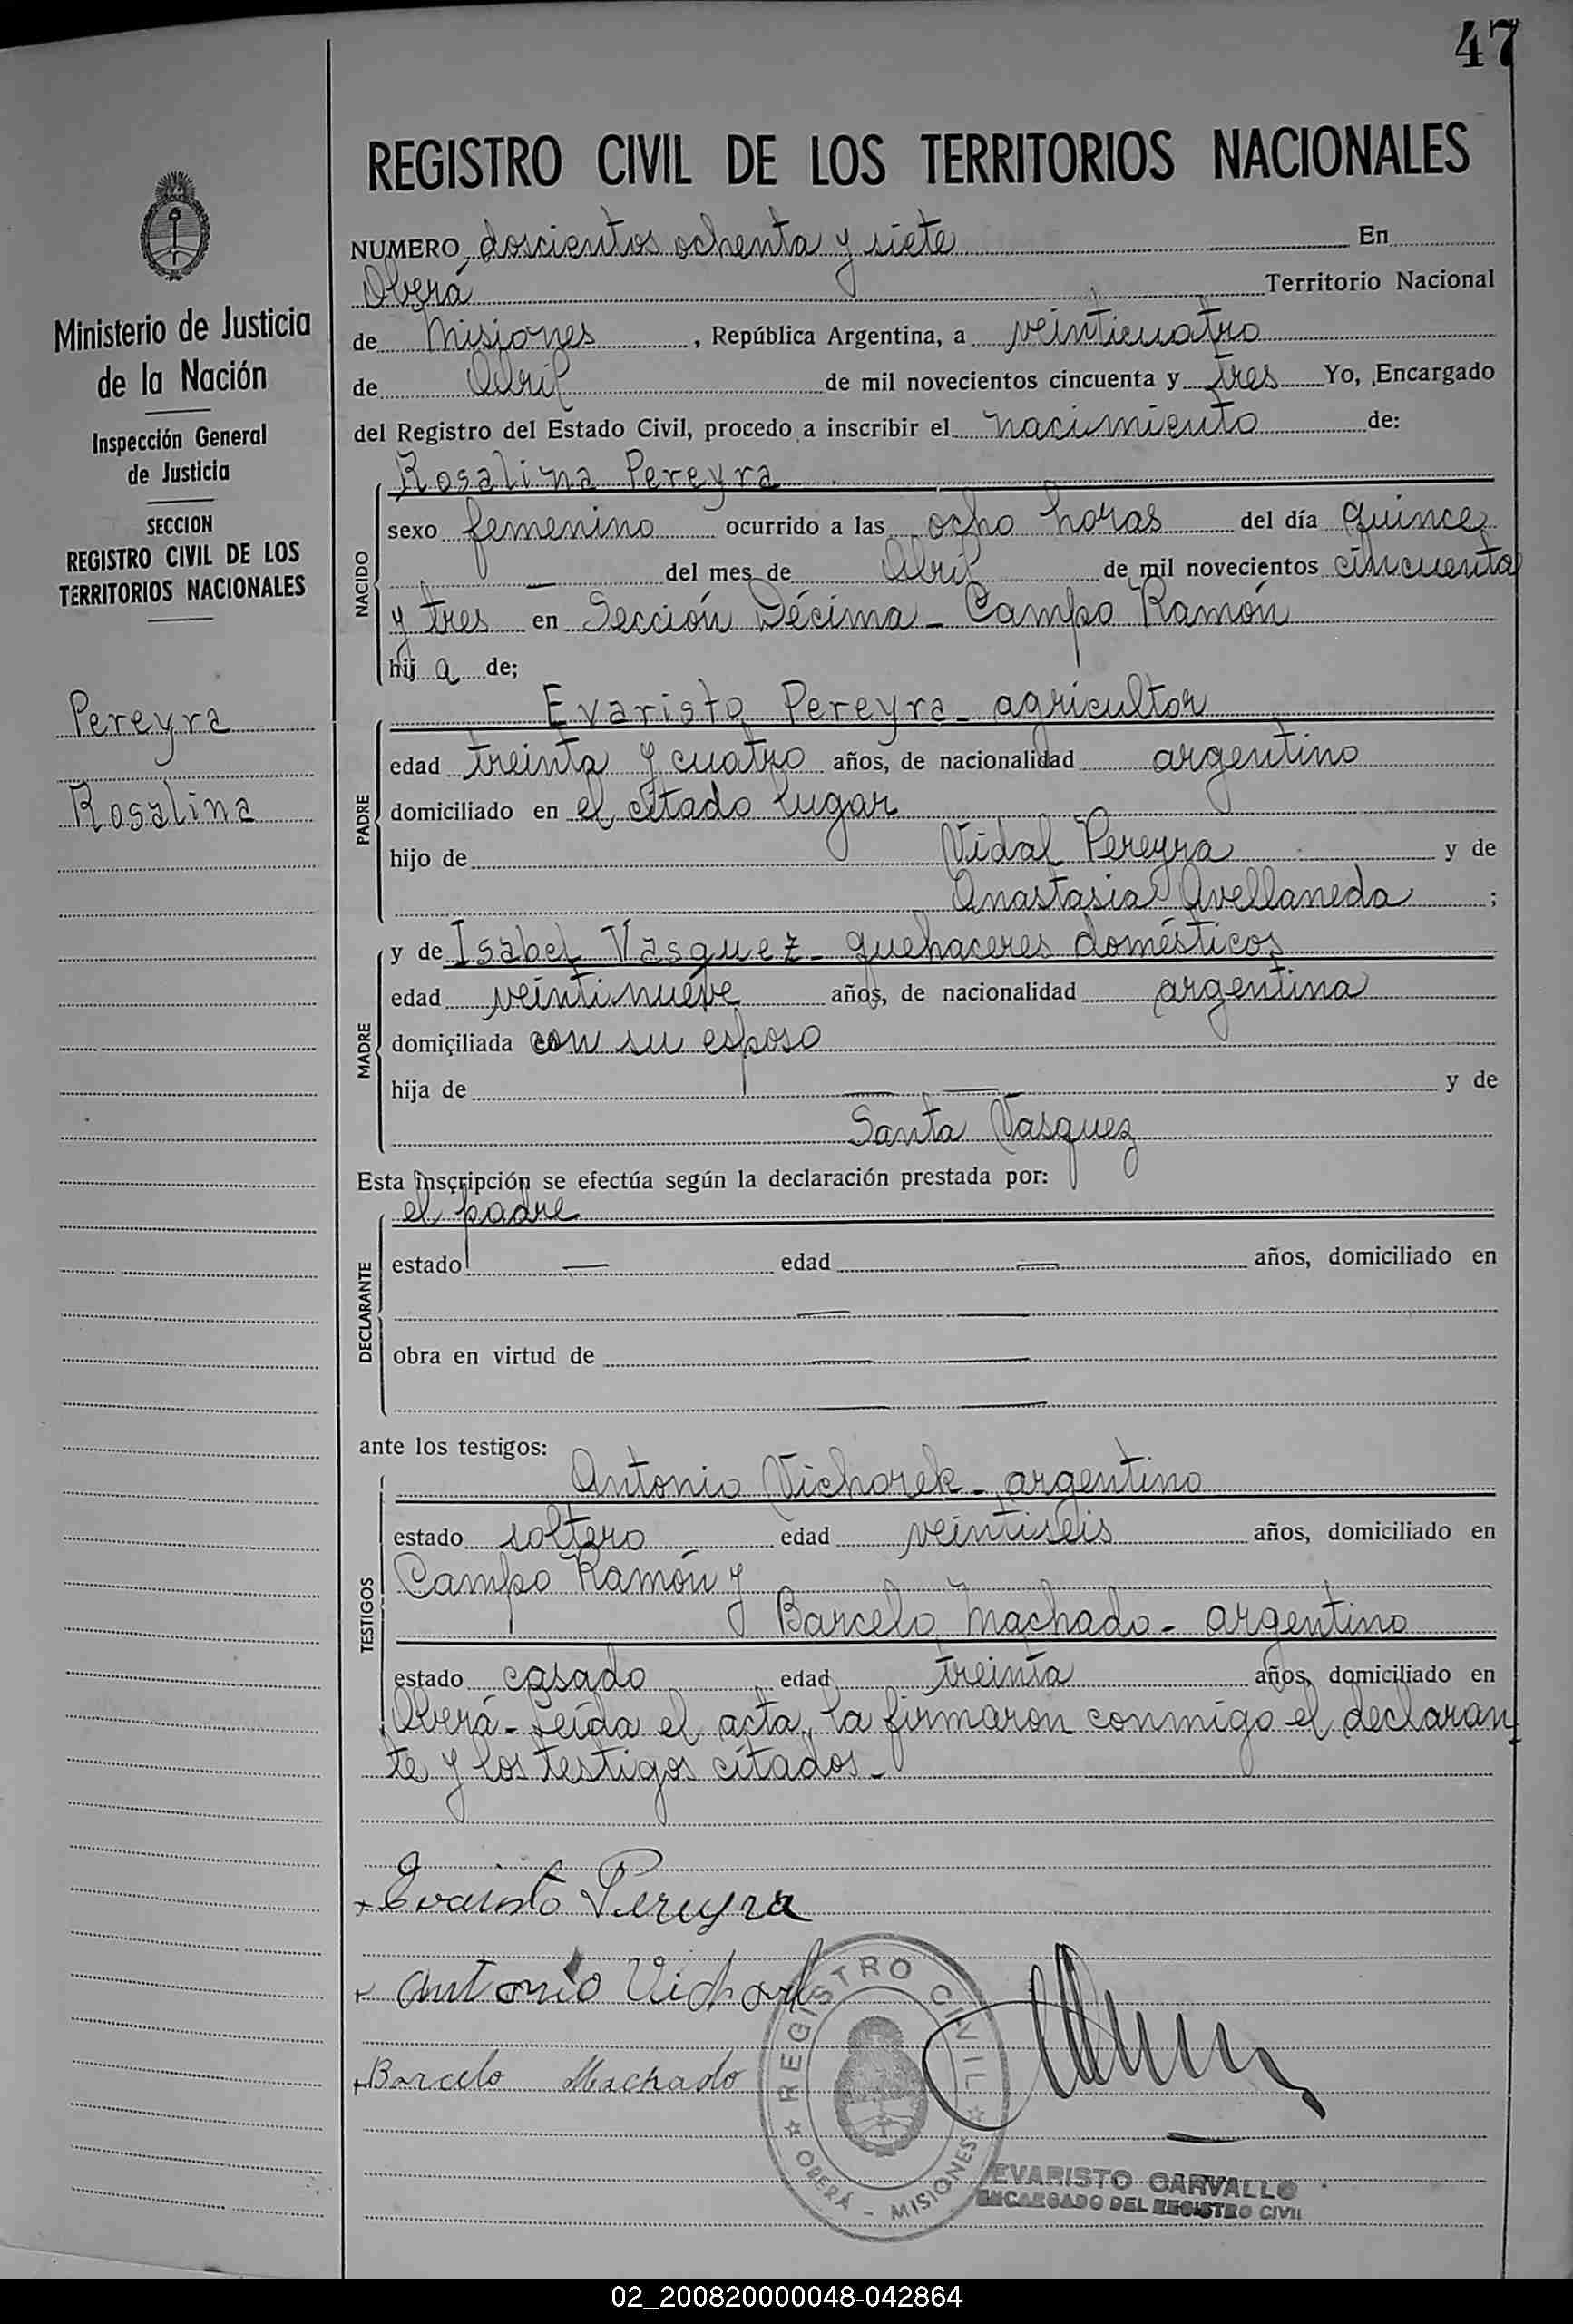 47
REGISTRO CIVIL DE LOS TERRITORIOS NACIONALES
NUMERO doscientos ochenta y siete En
Oberá Territorio Nacional
de Misiones, República Argentina, a veinticuatro
de Abril de mil novecientos cincuenta y tres Yo, Encargado
del Registro del Estado Civil, procedo a inscribir el nacimiento de:
Ministerio de Justicia
de la Nación
Inspección General
de Justicia
SECCION
REGISTRO CIVIL DE LOS
TERRITORIOS NACIONALES
Pereyra
Rosalina
NACIDO
Rosalina Pereyra
sexo femenino ocurrido a las ocho horas del día quince
del mes de Abril de mil novecientos cincuenta
y tres en Sección Décima - Campo Ramón
hija de;
PADRE
Evaristo Pereyra - agricultor
edad treinta y cuatro años, de nacionalidad argentino
domiciliado en el citado lugar
hijo de Vidal Pereyra y de
Anastasia Avellaneda ;
MADRE
y de Isabel Vasquez - quehaceres domésticos
edad veintinueve años, de nacionalidad argentina
domiciliada con su esposo
hija de y de
Santa Vasquez
Esta inscripción se efectúa según la declaración prestada por:
DECLARANTE
el padre
estado — edad — años, domiciliado en
obra en virtud de
ante los testigos:
TESTIGOS
Antonio Vichorek - argentino
estado soltero edad veintiseis años, domiciliado en
Campo Ramón y
Barcelo Machado - argentino
estado casado edad treinta años, domiciliado en
Oberá - Leída el acta, la firmaron conmigo el declaran-
te y los testigos citados -
Evaristo Pereyra
Antonio
Barcelo Machado
REGISTRO CIVIL
OBERÁ - MISIONES
EVARISTO CARVALLO
ENCARGADO DEL REGISTRO CIVIL
02_200820000048-042864